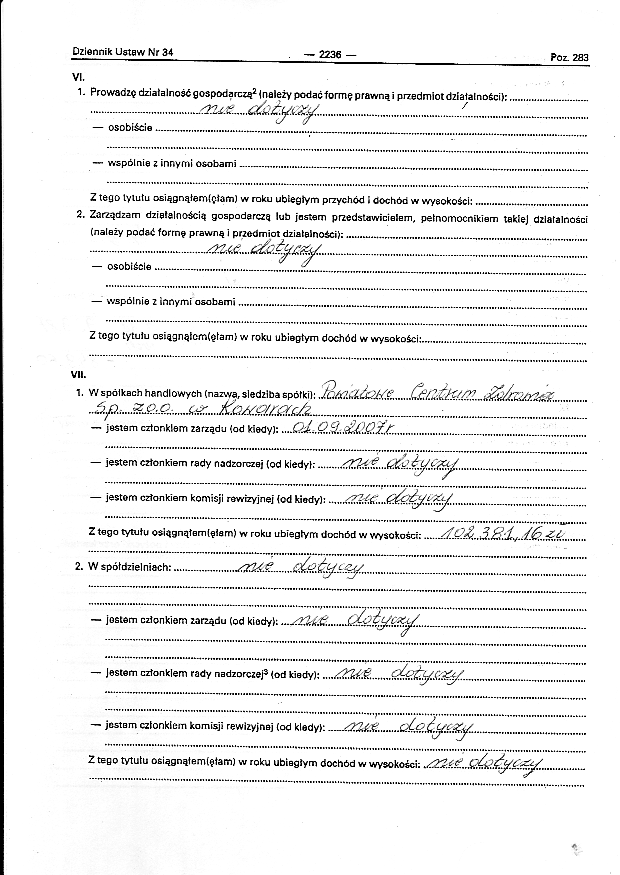 Dziennik Ustaw Nr 34 — 2236 — Poz. 283
VI.
1. Prowadzę działalność gospodarczą² (należy podać formę prawną i przedmiot działalności):
nie dotyczy
— osobiście
— wspólnie z innymi osobami
Z tego tytułu osiągnąłem(ęłam) w roku ubiegłym przychód i dochód w wysokości:
2. Zarządzam działalnością gospodarczą lub jestem przedstawicielem, pełnomocnikiem takiej działalności
(należy podać formę prawną i przedmiot działalności):
nie dotyczy
— osobiście
— wspólnie z innymi osobami
Z tego tytułu osiągnąłem(ęłam) w roku ubiegłym dochód w wysokości:
VII.
1. W spółkach handlowych (nazwa, siedziba spółki): Powiatowe Centrum Zdrowia
Sp. z o.o. w Kowarach
— jestem członkiem zarządu (od kiedy): 01.09.2007r
— jestem członkiem rady nadzorczej (od kiedy): nie dotyczy
— jestem członkiem komisji rewizyjnej (od kiedy): nie dotyczy
Z tego tytułu osiągnąłem(ęłam) w roku ubiegłym dochód w wysokości: 102 381,16 zł
2. W spółdzielniach: nie dotyczy
— jestem członkiem zarządu (od kiedy): nie dotyczy
— jestem członkiem rady nadzorczej³ (od kiedy): nie dotyczy
— jestem członkiem komisji rewizyjnej (od kiedy): nie dotyczy
Z tego tytułu osiągnąłem(ęłam) w roku ubiegłym dochód w wysokości: nie dotyczy